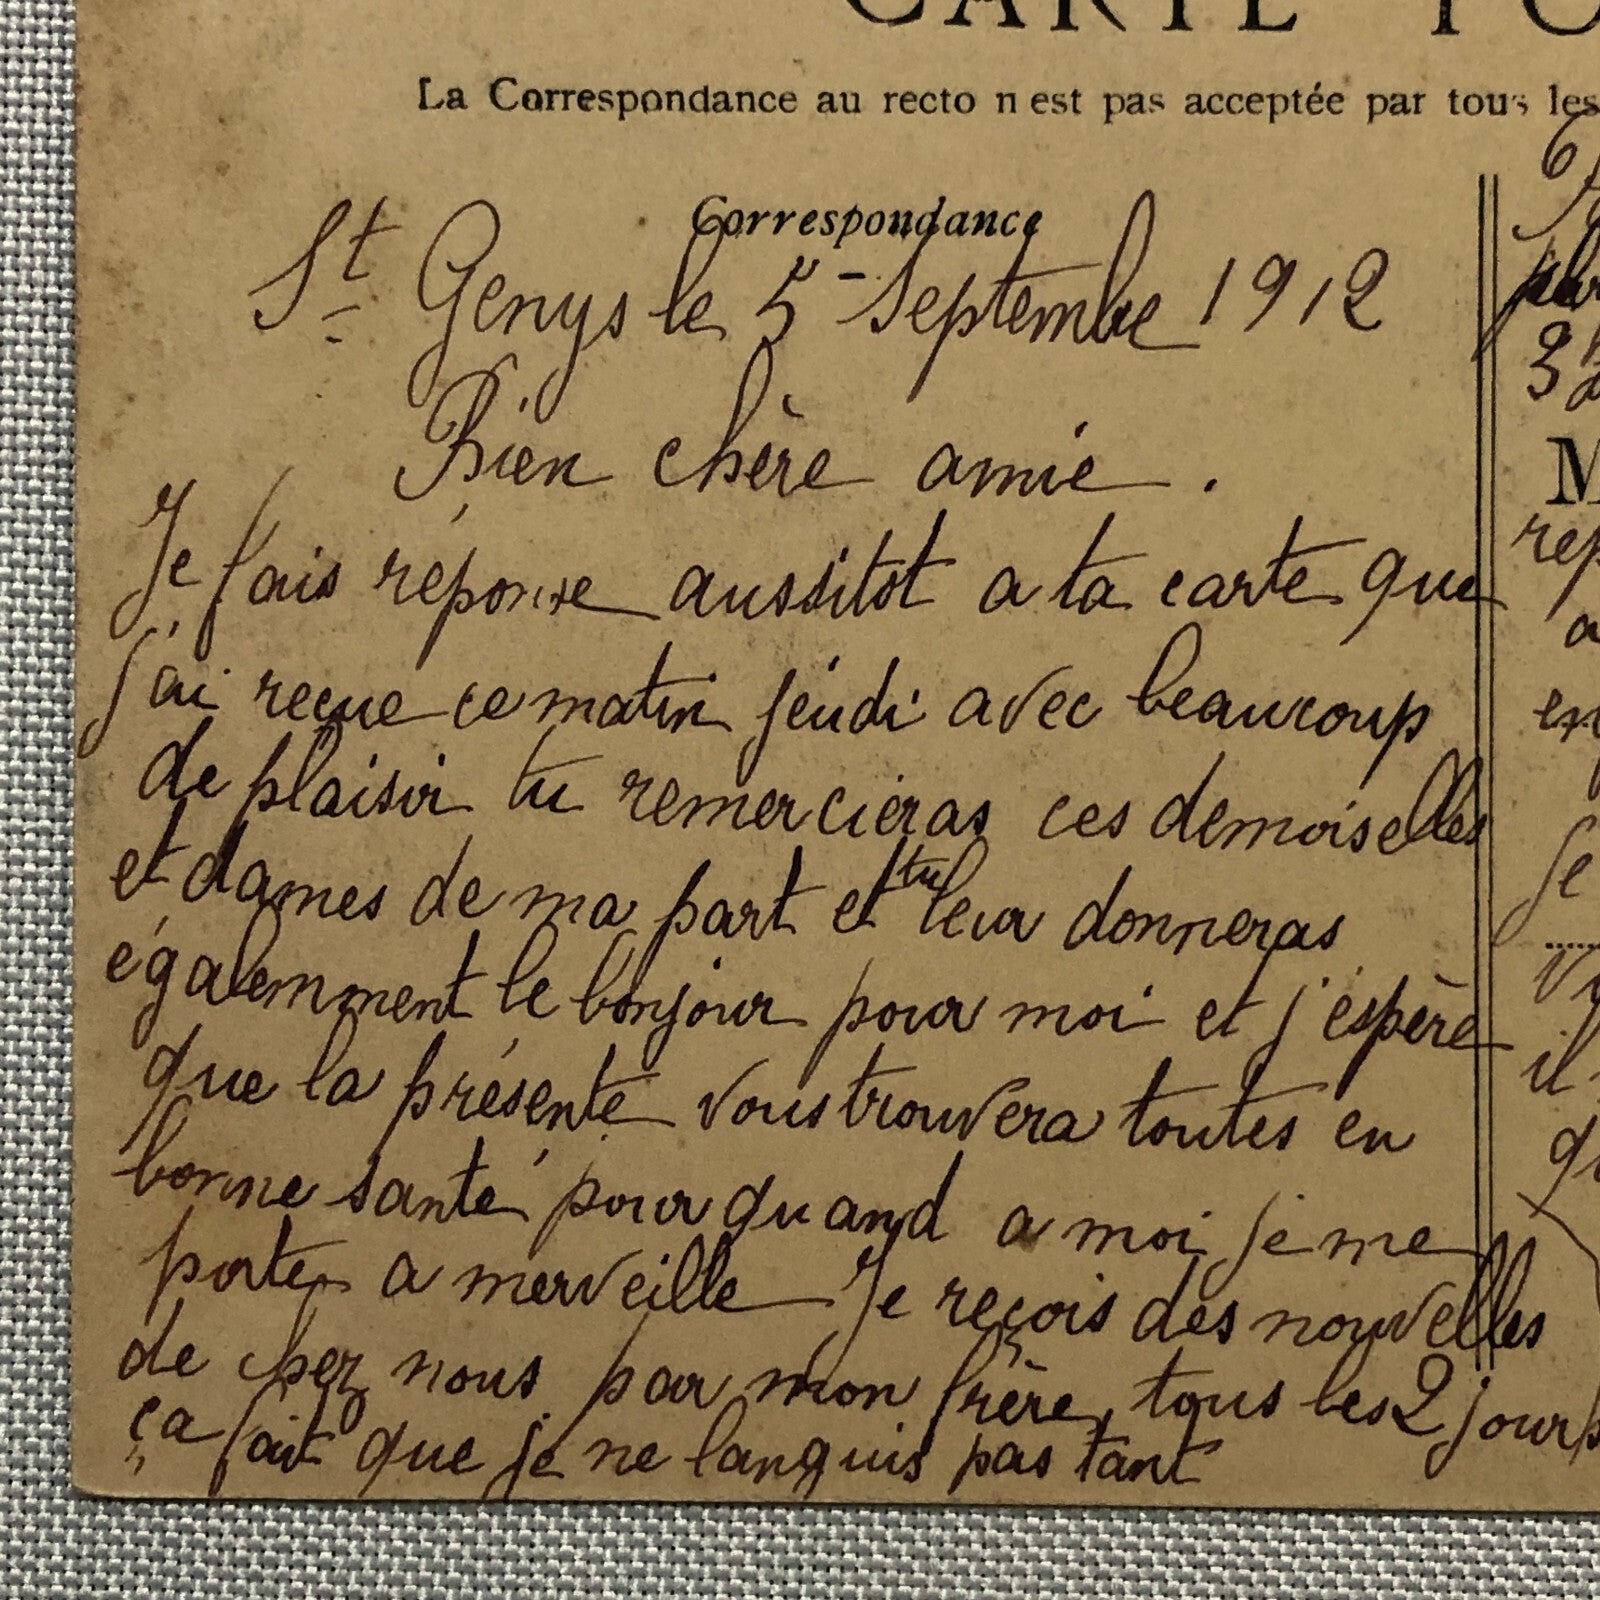 CARTE
La Correspondance au recto n'est pas acceptée par tous les
Correspondance
St Genys le 5 Septembre 1912
Bien chère amie.
Je fais réponse aussitôt a ta carte que
j'ai reçue ce matin jeudi avec beaucoup
de plaisir tu remercieras ces demoiselles
et dames de ma part et tu leur donneras
égalemment le bonjour pour moi et j'éspère
que la présente vous trouvera toutes en
bonne santé pour quand a moi je me
porte a merveille Je reçois des nouvelles
de chez nous par mon frère, tous les 2 jours
ça fait que je ne languis pas tant
3
M
Je
il